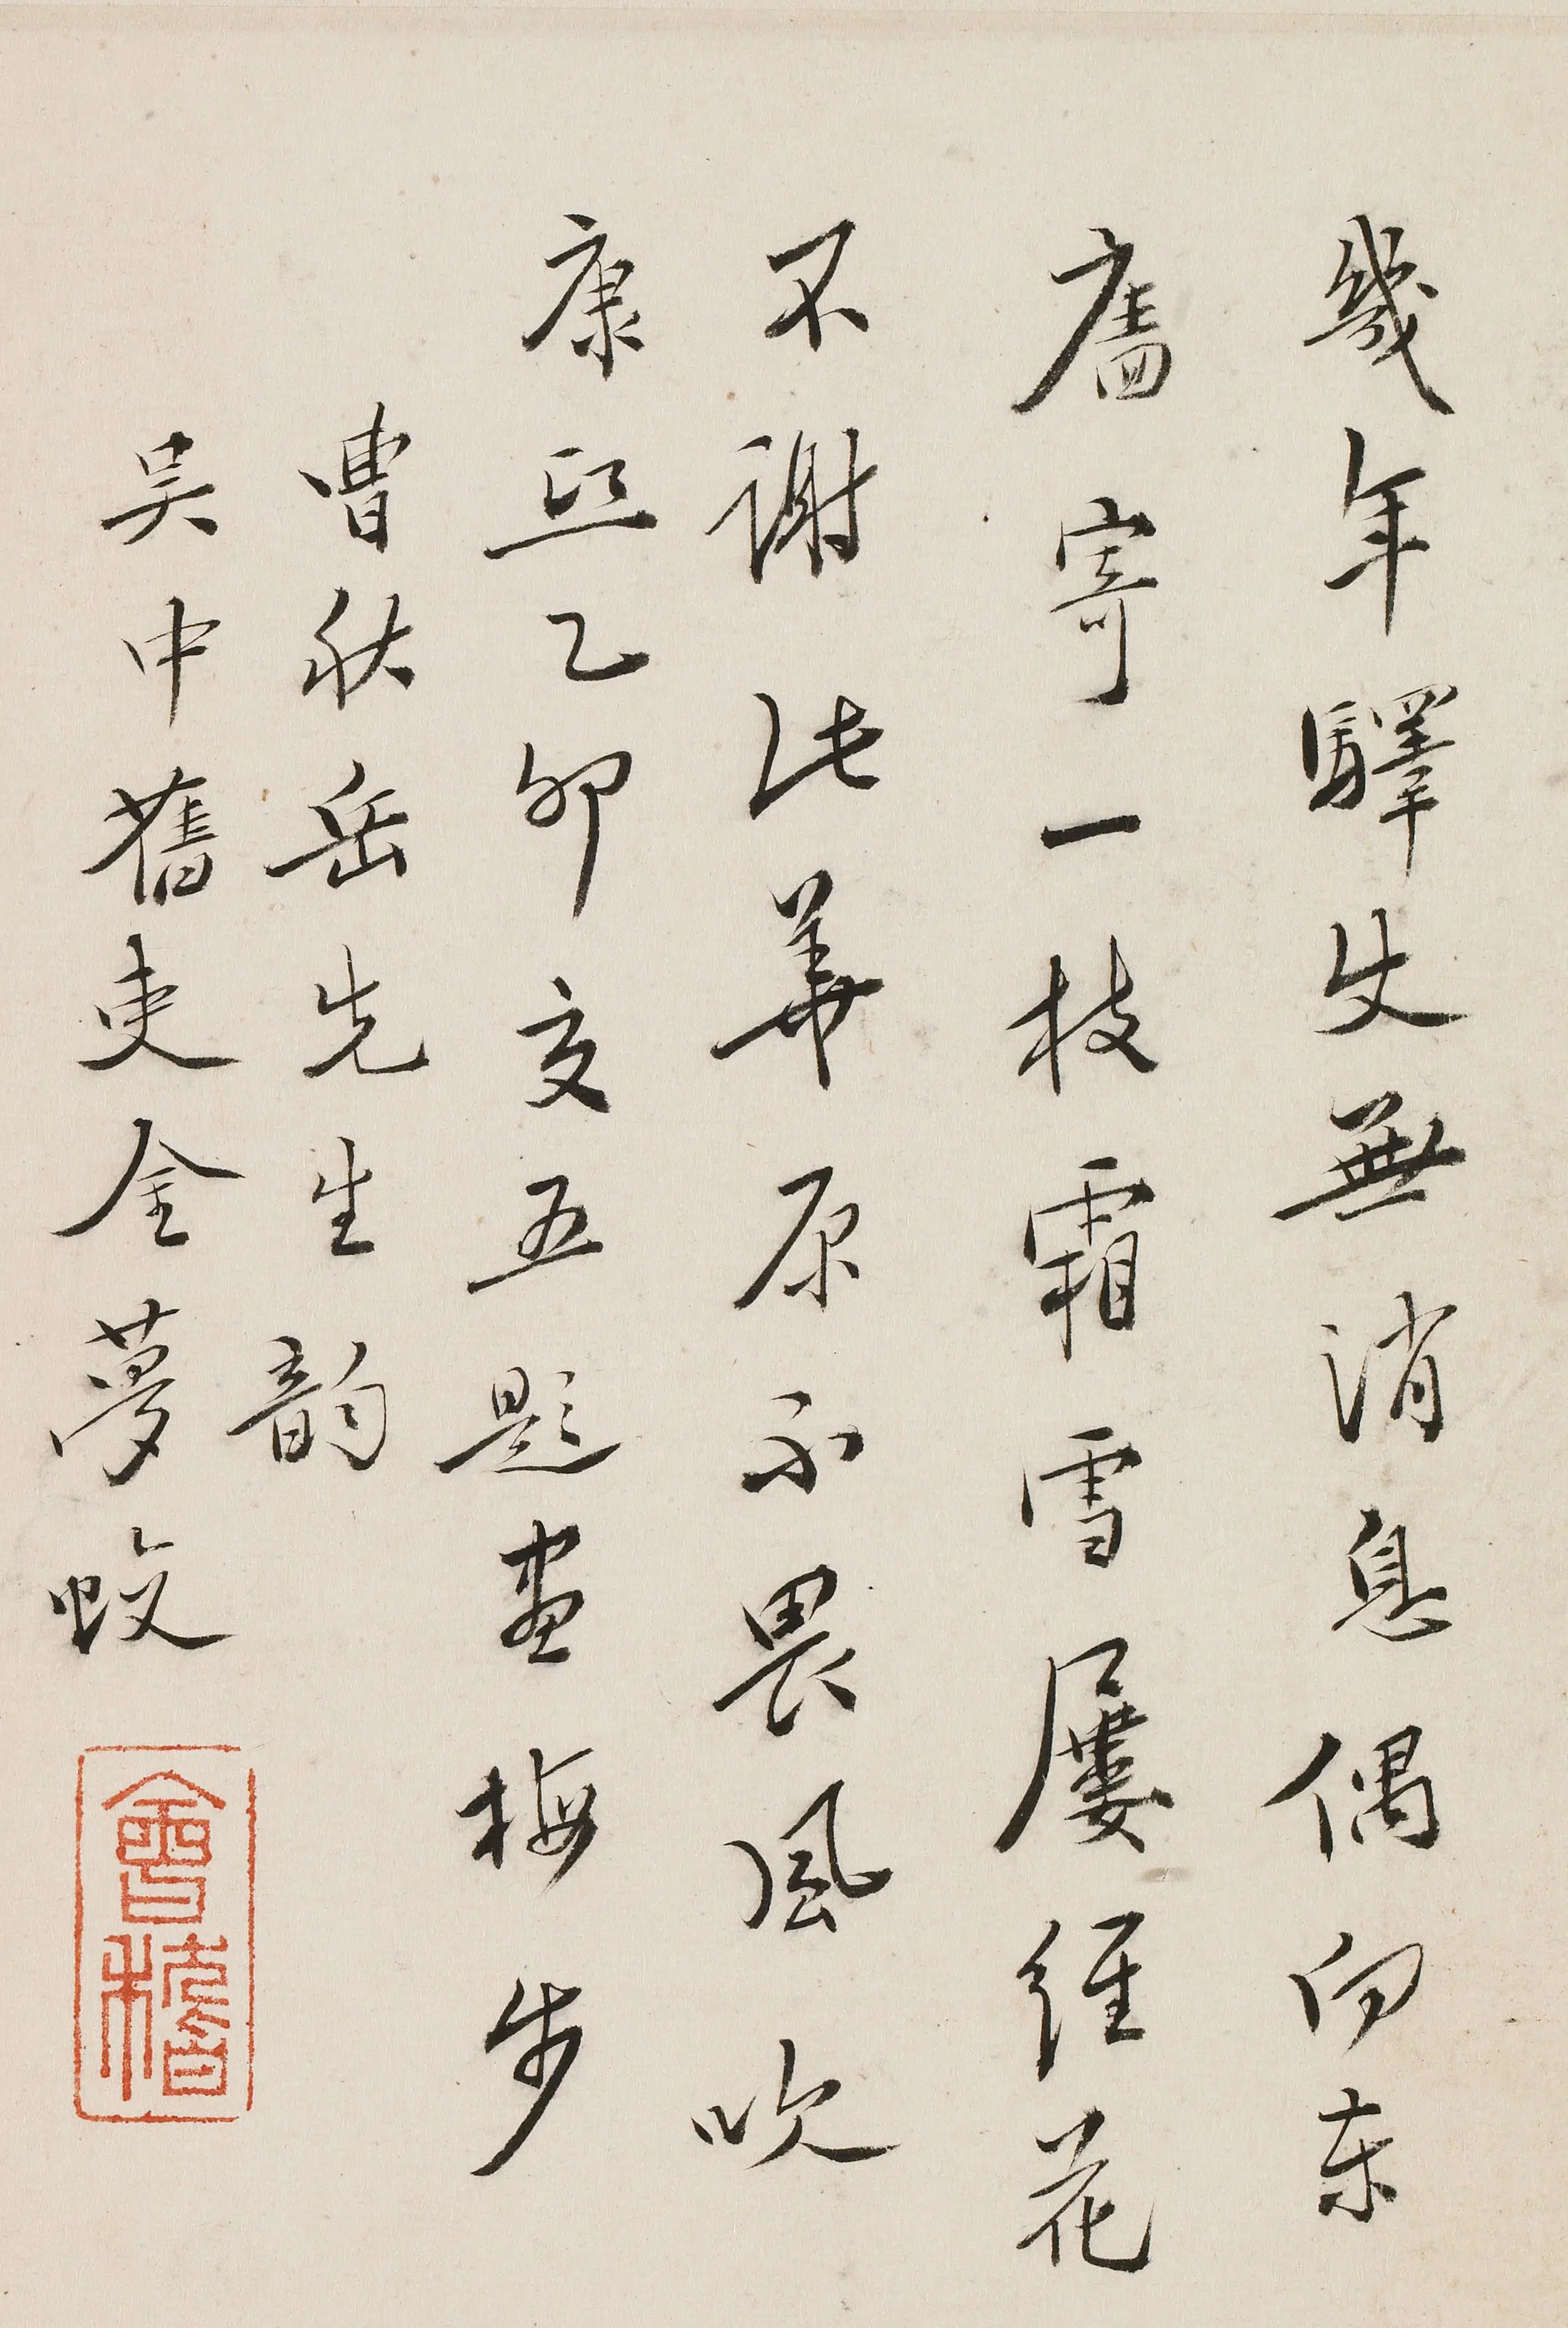 幾年驛使無消息偶向東
牆寄一枝霜雪屢經花
不謝此華原不畏風吹
康熙乙卯交五題畫梅步
曹秋岳先生韵
吴中舊吏金夢蛟
會稽